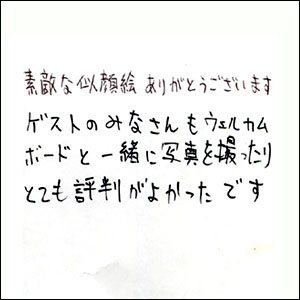 素敵な似顔絵 ありがとうございます
ゲストのみなさんもウェルカム
ボードと一緒に写真を撮ったり
とても評判がよかったです